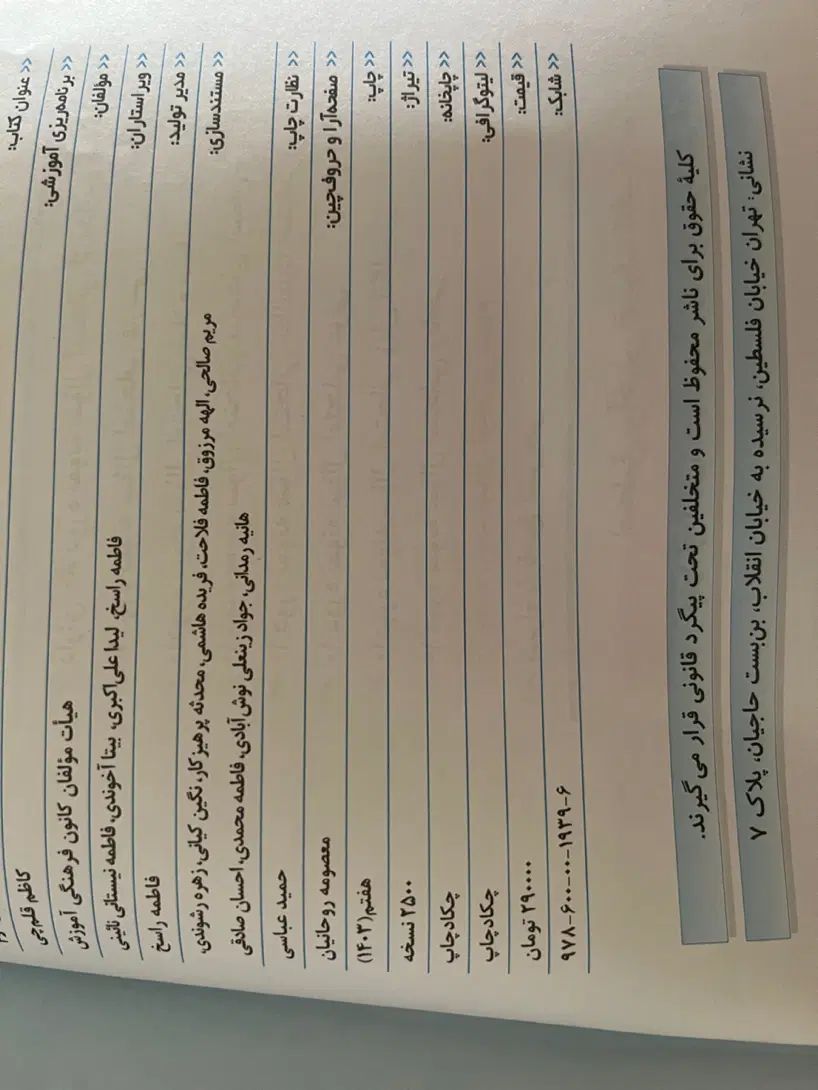 « عنوان کتاب:
« برنامه‌ریزی آموزشی: کاظم قلم‌چی
« مؤلفان: هیأت مؤلفان کانون فرهنگی آموزش
« ویراستاران: فاطمه راسخ، لیدا علی‌اکبری، بیتا آخوندی، فاطمه نیستانی نائینی
« مدیر تولید: فاطمه راسخ
« مستندسازی: مریم صالحی، الهه مرزوق، فاطمه فلاحت، فریده هاشمی، محدثه پرهیزکار، نگین کیانی، زهره رشوندی،
هانیه رمدانی، جواد زینعلی نوش‌آبادی، فاطمه محمدی، احسان صادقی
« نظارت چاپ: حمید عباسی
« صفحه‌آرا و حروفچین: معصومه روحانیان
« چاپ: هفتم(۱۴۰۳)
« تیراژ: ۲۵۰۰ نسخه
« چاپخانه: چکادچاپ
« لیتوگرافی: چکادچاپ
« قیمت: ۲۹۰۰۰۰ تومان
« شابک: ۹۷۸-۶۰۰-۰۰-۱۹۳۹-۶
کلیهٔ حقوق برای ناشر محفوظ است و متخلفین تحت پیگرد قانونی قرار می‌گیرند.
نشانی: تهران خیابان فلسطین، نرسیده به خیابان انقلاب، بن‌بست حاجیان، پلاک ۷